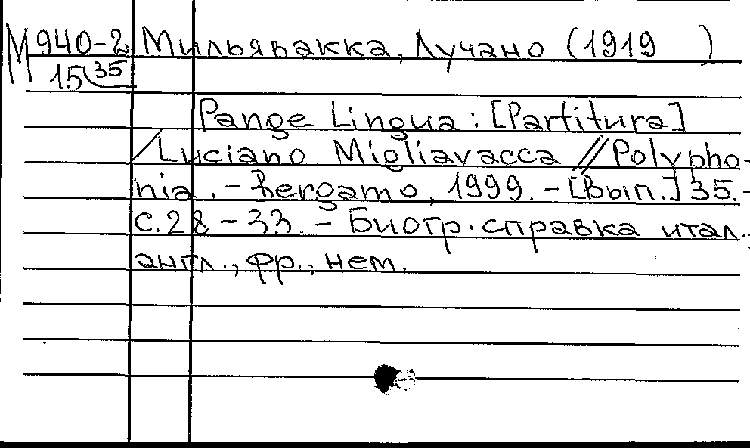 М940-2 Мильявакка, Лучано (1919 )
15 35
Pange Lingua : [Partitura]
/Luciano Migliavacca // Polypho-
nia. - Bergamo, 1999. - [Вып.] 35. -
с.28 - 33. - Биогр. справка итал.,
англ., фр., нем.